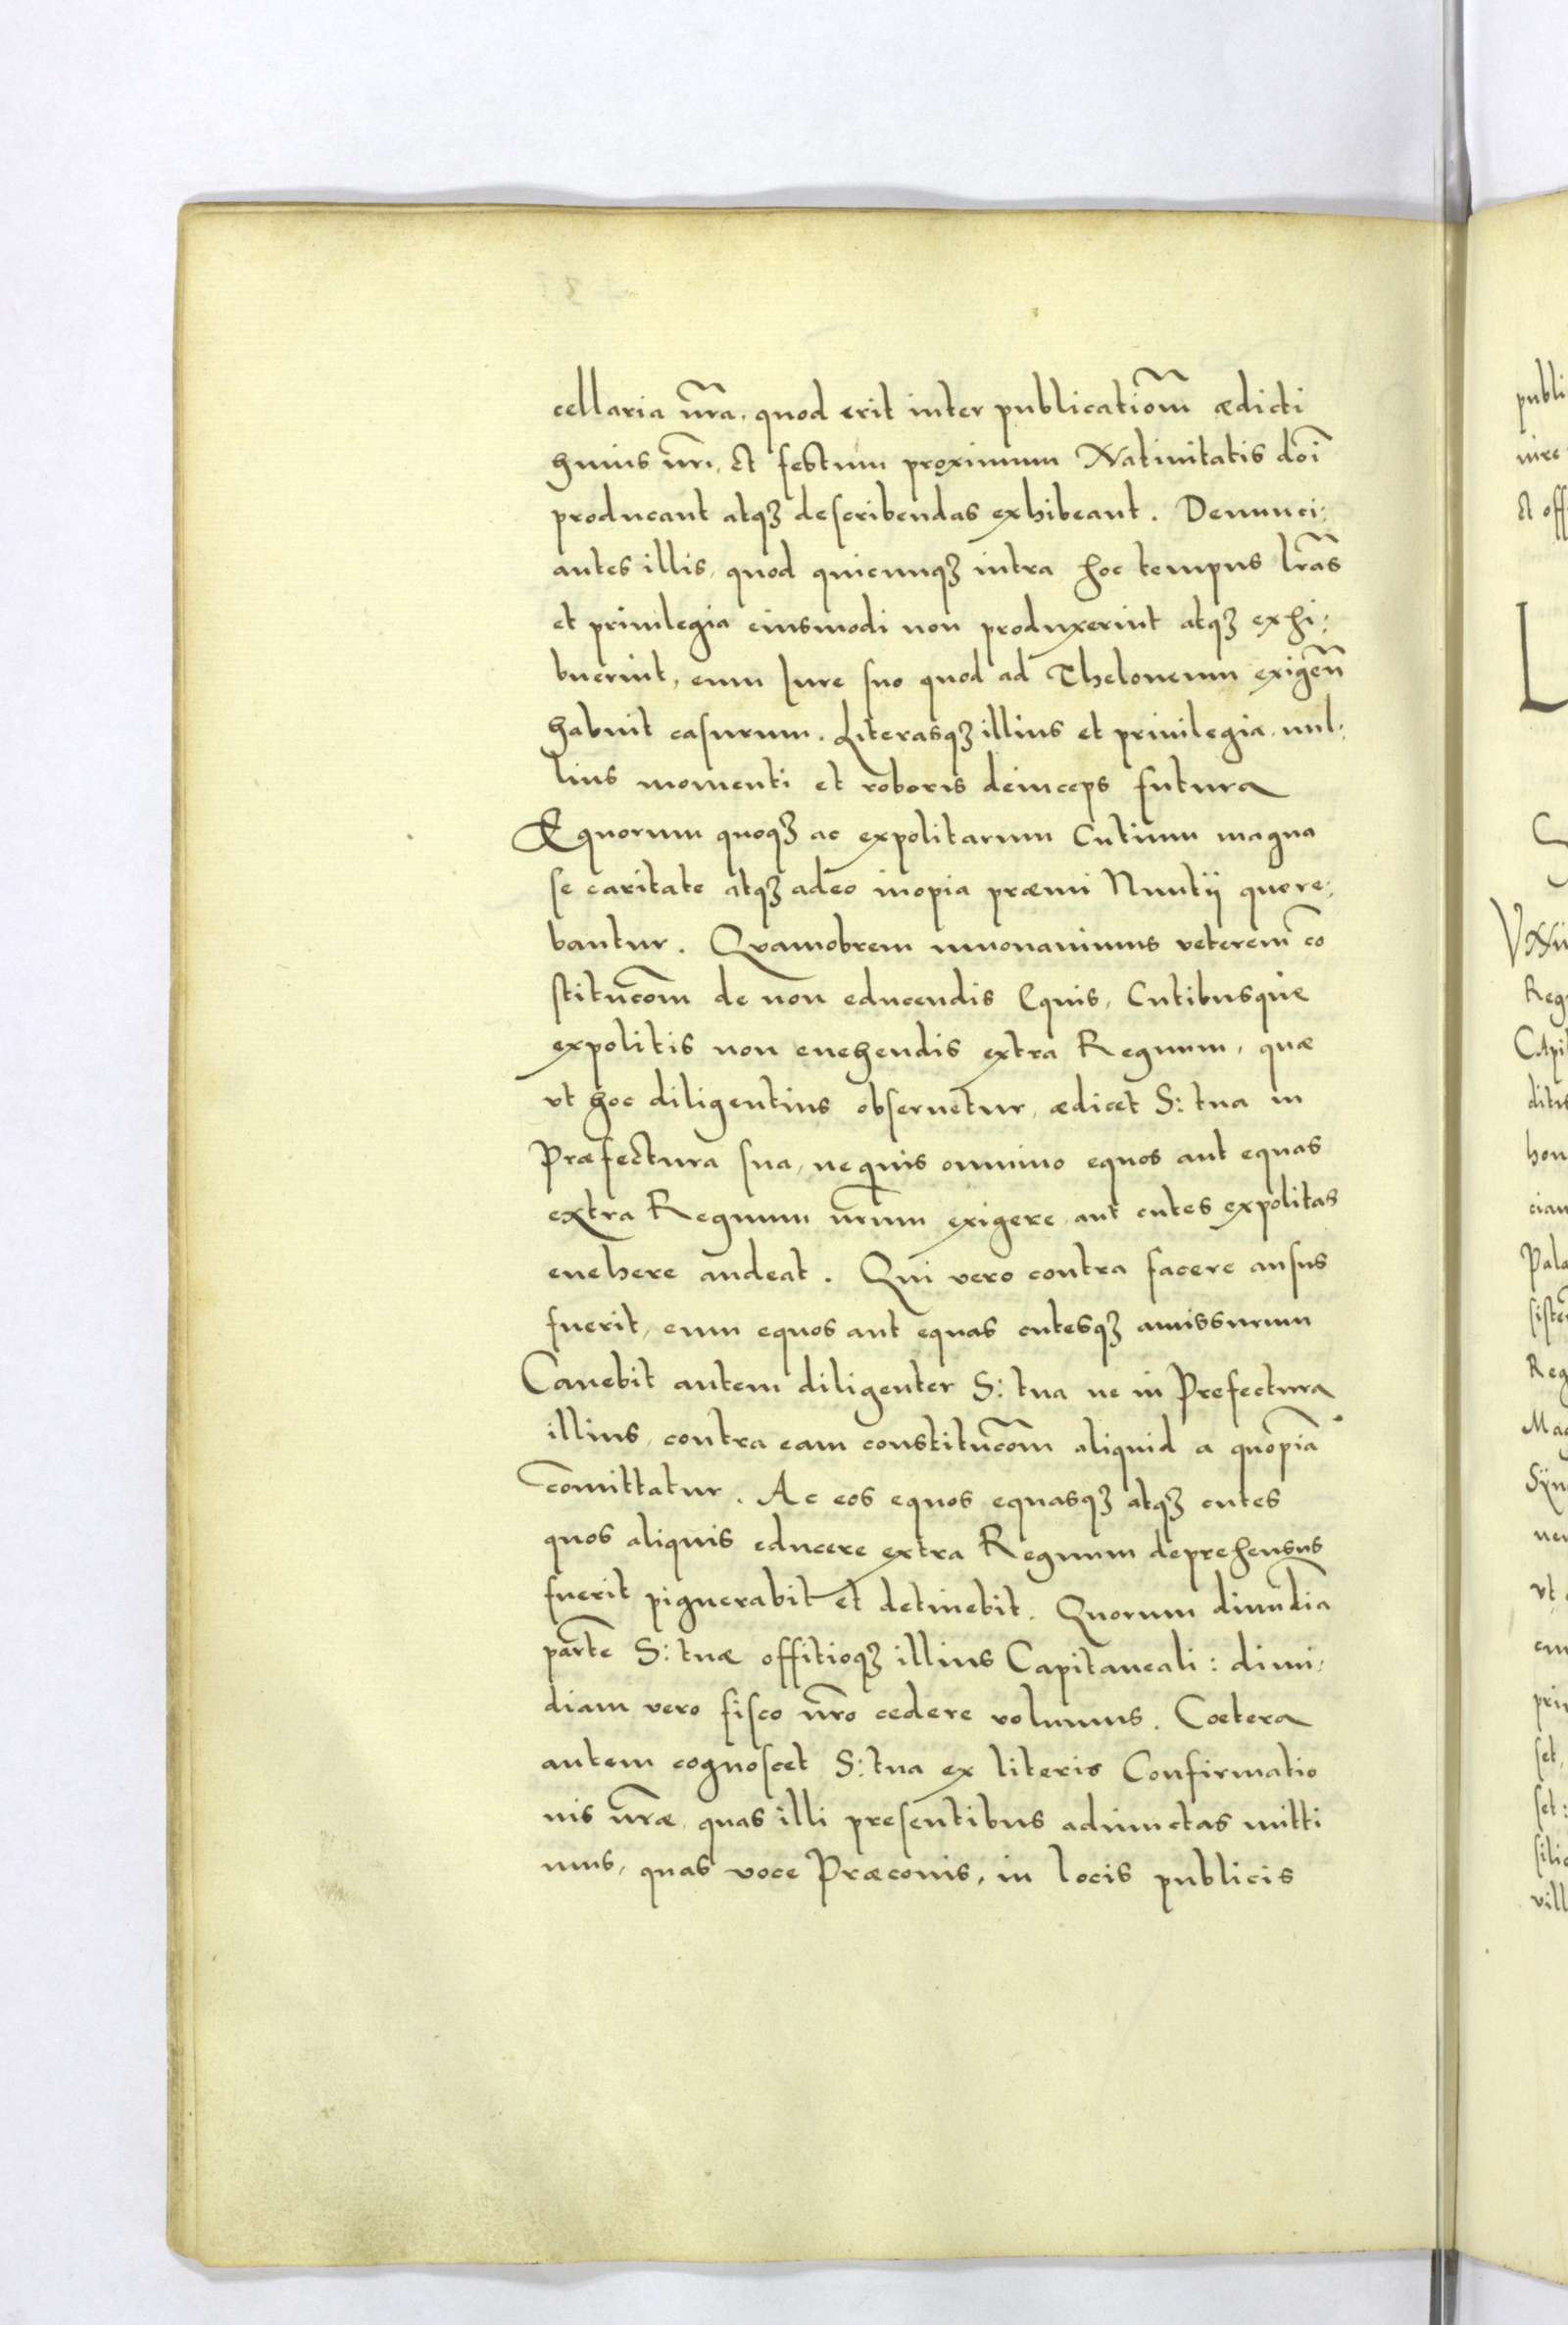 cellaria nr̃a, quod erit inter publicatiom̃ ædicti
huius nr̃i, et festum proximum Natiuitatis doĩ
producant atqꝫ describendas exhibeant. Denunci:
antes illis, quod quicunqꝫ intra hoc tempus lr̃as
et priuilegia eiusmodi non produxerint atqꝫ exhi:
buerint, eum Iure suo quod ad Theloneum exigeñ
habuit casurum. Literasqꝫ illius et priuilegia, nul:
lius momenti et roboris deinceps futura
Equorum quoqꝫ ac expolitarum Cutium magna
se caritate atqꝫ adeo inopia præmi Nuntij quere:
bantur. Quamobrem innouauimus veterem cõ
stitucõm de non educendis Equis, Cutibusque
expolitis non euehendis extra Regnum, quæ
vt hoc diligentius obseruetur, ædicet S: tua in
Præfectura sua, ne quis omnino equos aut equas
extra Regnum nr̃um exigere aut cutes expolitas
euehere audeat. Qui vero contra facere ausus
fuerit, eum equos aut equas cutesqꝫ amissurum
Cauebit autem diligenter S: tua ne in Prefectura
illius, contra eam constitucõm aliquid a quopiã
com̃ittatur. Ac eos equos equasqꝫ atqꝫ cutes
quos aliquis educere extra Regnum deprehensus
fuerit pignerabit et detinebit. Quorum dimidiã
partẽ S: tuæ offitioqꝫ illius Capitaneali: dimi:
diam vero fisco nr̃o cedere volumus. Cœtera
autem cognoscet S: tua ex literis Confirmatio
nis nr̃æ, quas illi presentibus adiunctas mitti
mus, quas voce Præconis, in locis publicis